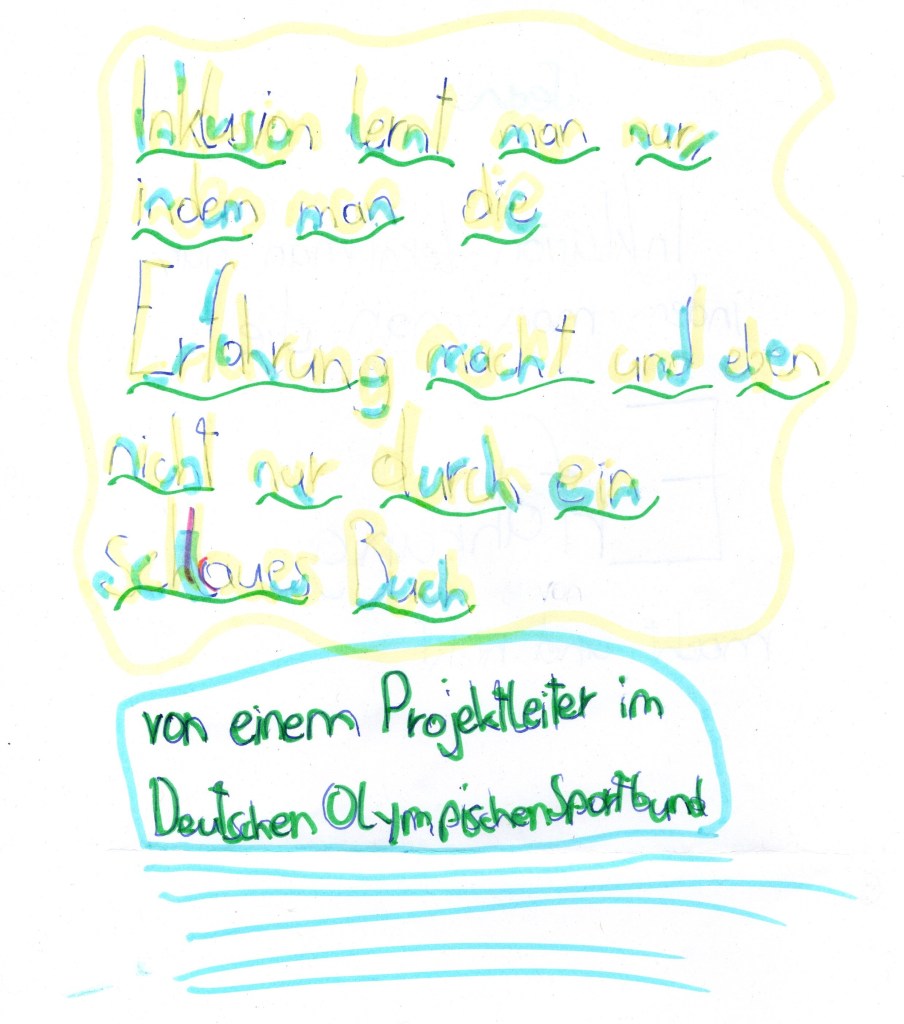 Inklusion lernt man nur,
indem man die
Erfahrung macht und eben
nicht nur durch ein
schlaues Buch
von einem Projektleiter im
Deutschen Olympischen Sportbund